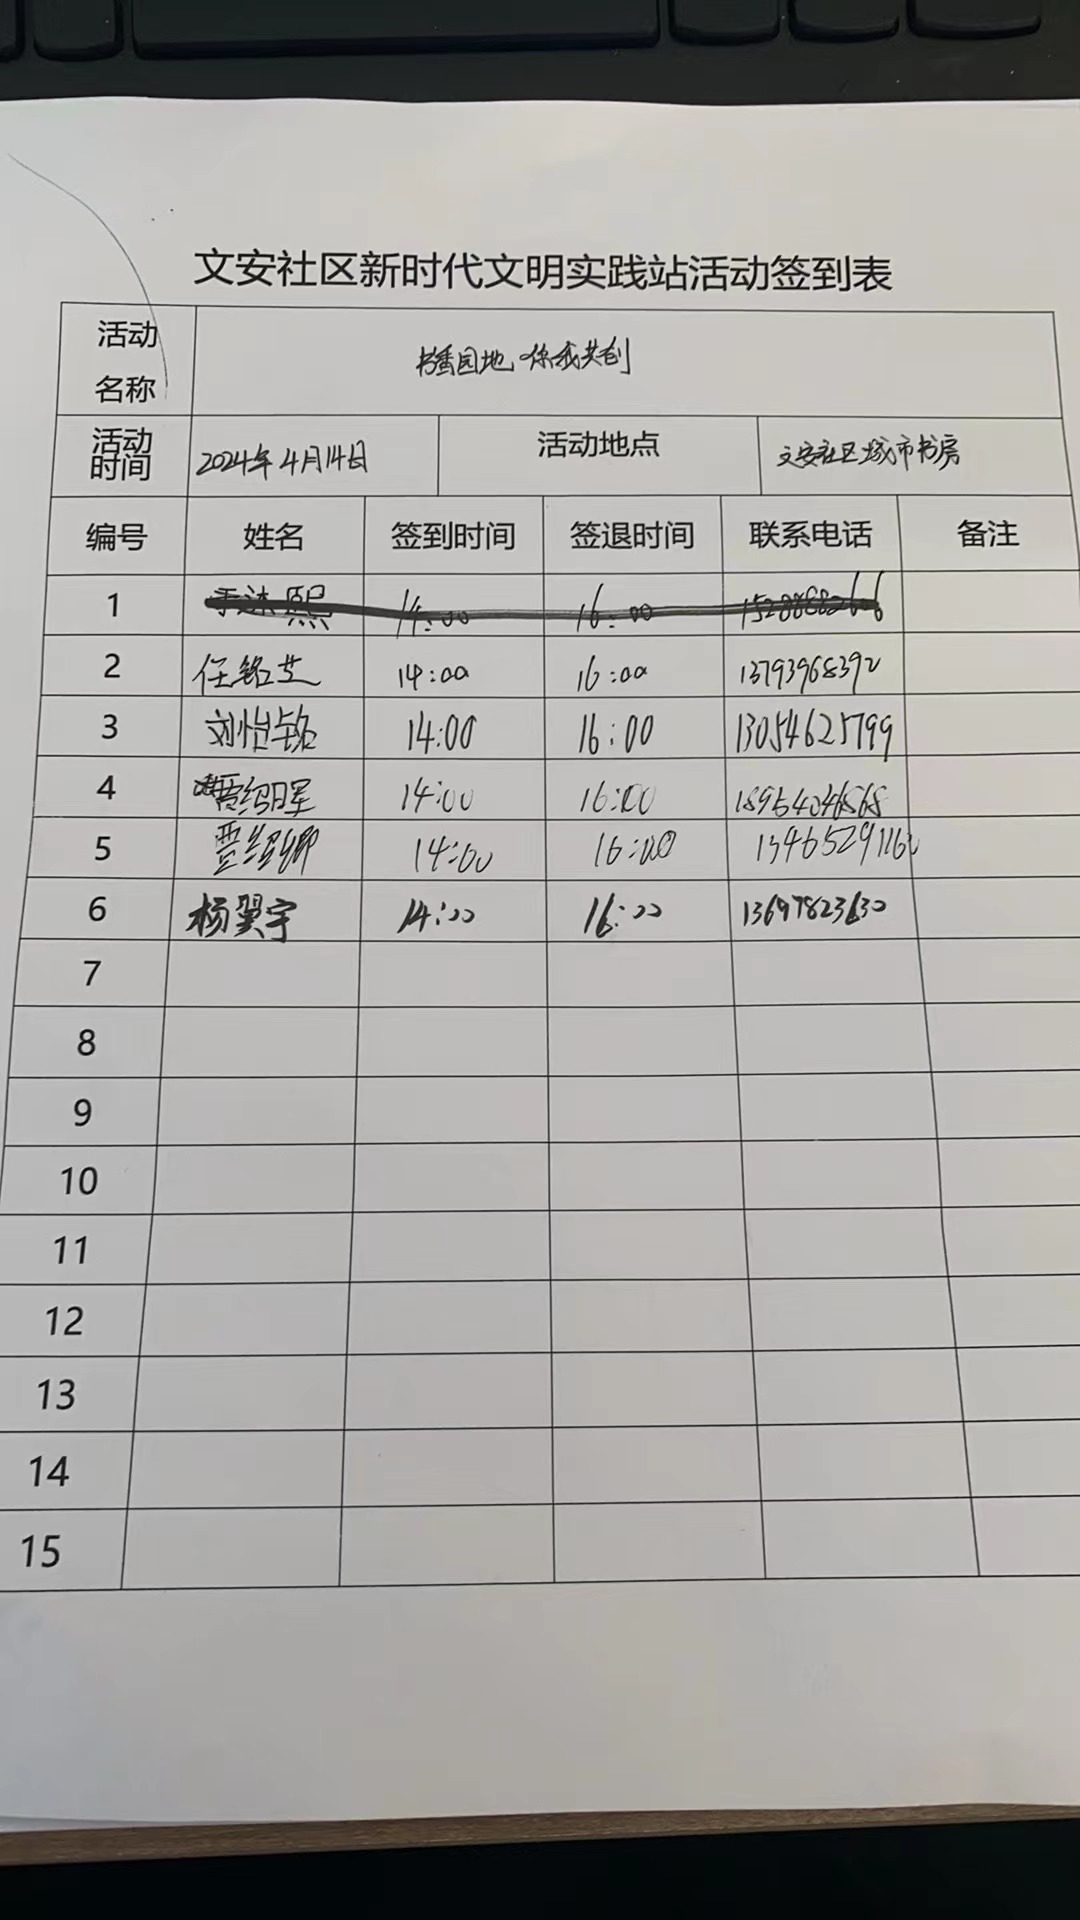 文安社区新时代文明实践站活动签到表
活动名称 书香园地,你我共创
活动时间 2024年4月14日 活动地点 文安社区城市书房
编号 姓名 签到时间 签退时间 联系电话 备注
1 14:00 16:00
2 任铭芝 14:00 16:00 13793968392
3 刘怡铭 14:00 16:00 13054625799
4 14:00 16:00 18954046868
5 14:00 16:00
6 杨翼宇 14:00 16:00 13697823630
7
8
9
10
11
12
13
14
15